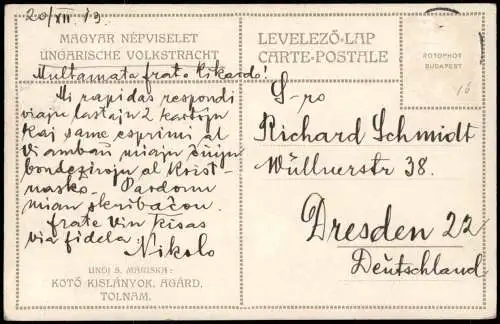 20/XII 13
MAGYAR NÉPVISELET
UNGARISCHE VOLKSTRACHT
Multamata frato Rikardo!
Mi rapidas respondi
viajn lastajn 2 kartojn
kaj same esprimi al
Vi ambaŭ miajn ĉiujn
bondezirojn al Krist-
nasko. Pardonu
mian skribaĉon.
frate Vin kisas
via fidela
Nikolo
UNDI S. MARISKA:
KOTÓ KISLÁNYOK. AGÁRD.
TOLNAM.
LEVELEZŐ-LAP
CARTE-POSTALE
ROTOPHOT
BUDAPEST
16
S-ro
Richard Schmidt
Wüllnerstr 38.
Dresden 22
Deutschland